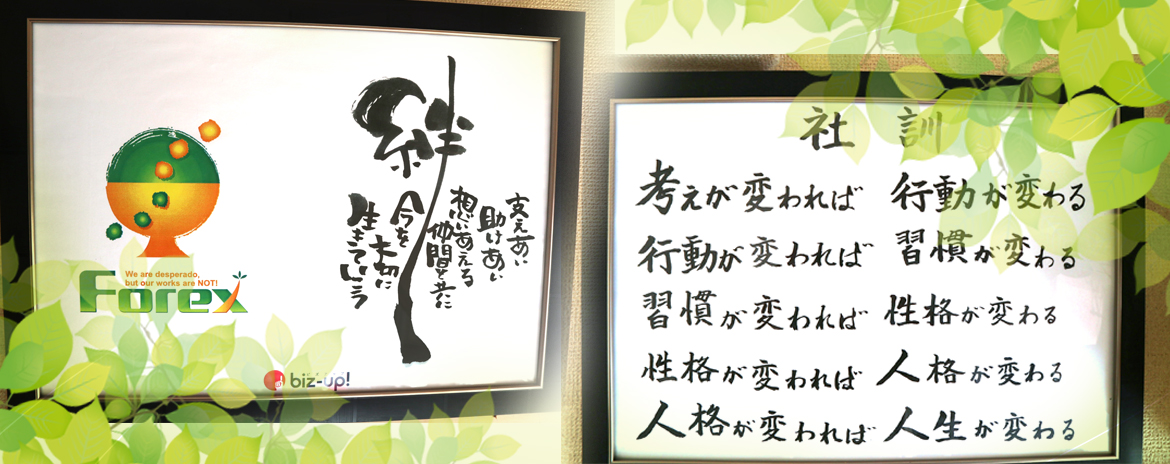 We are desperado,
but our works are NOT!
Forex
絆
支えあい
助けあい
想いあえる
仲間と共に
今を
大切に
生きていこう
biz-up!
社訓
考えが変われば 行動が変わる
行動が変われば 習慣が変わる
習慣が変われば 性格が変わる
性格が変われば 人格が変わる
人格が変われば 人生が変わる